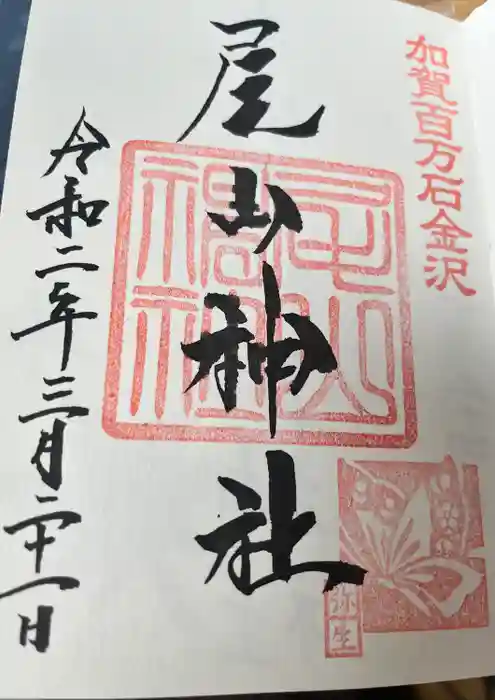 加賀百万石金沢
尾山神社
令和二年三月二十一日
弥生